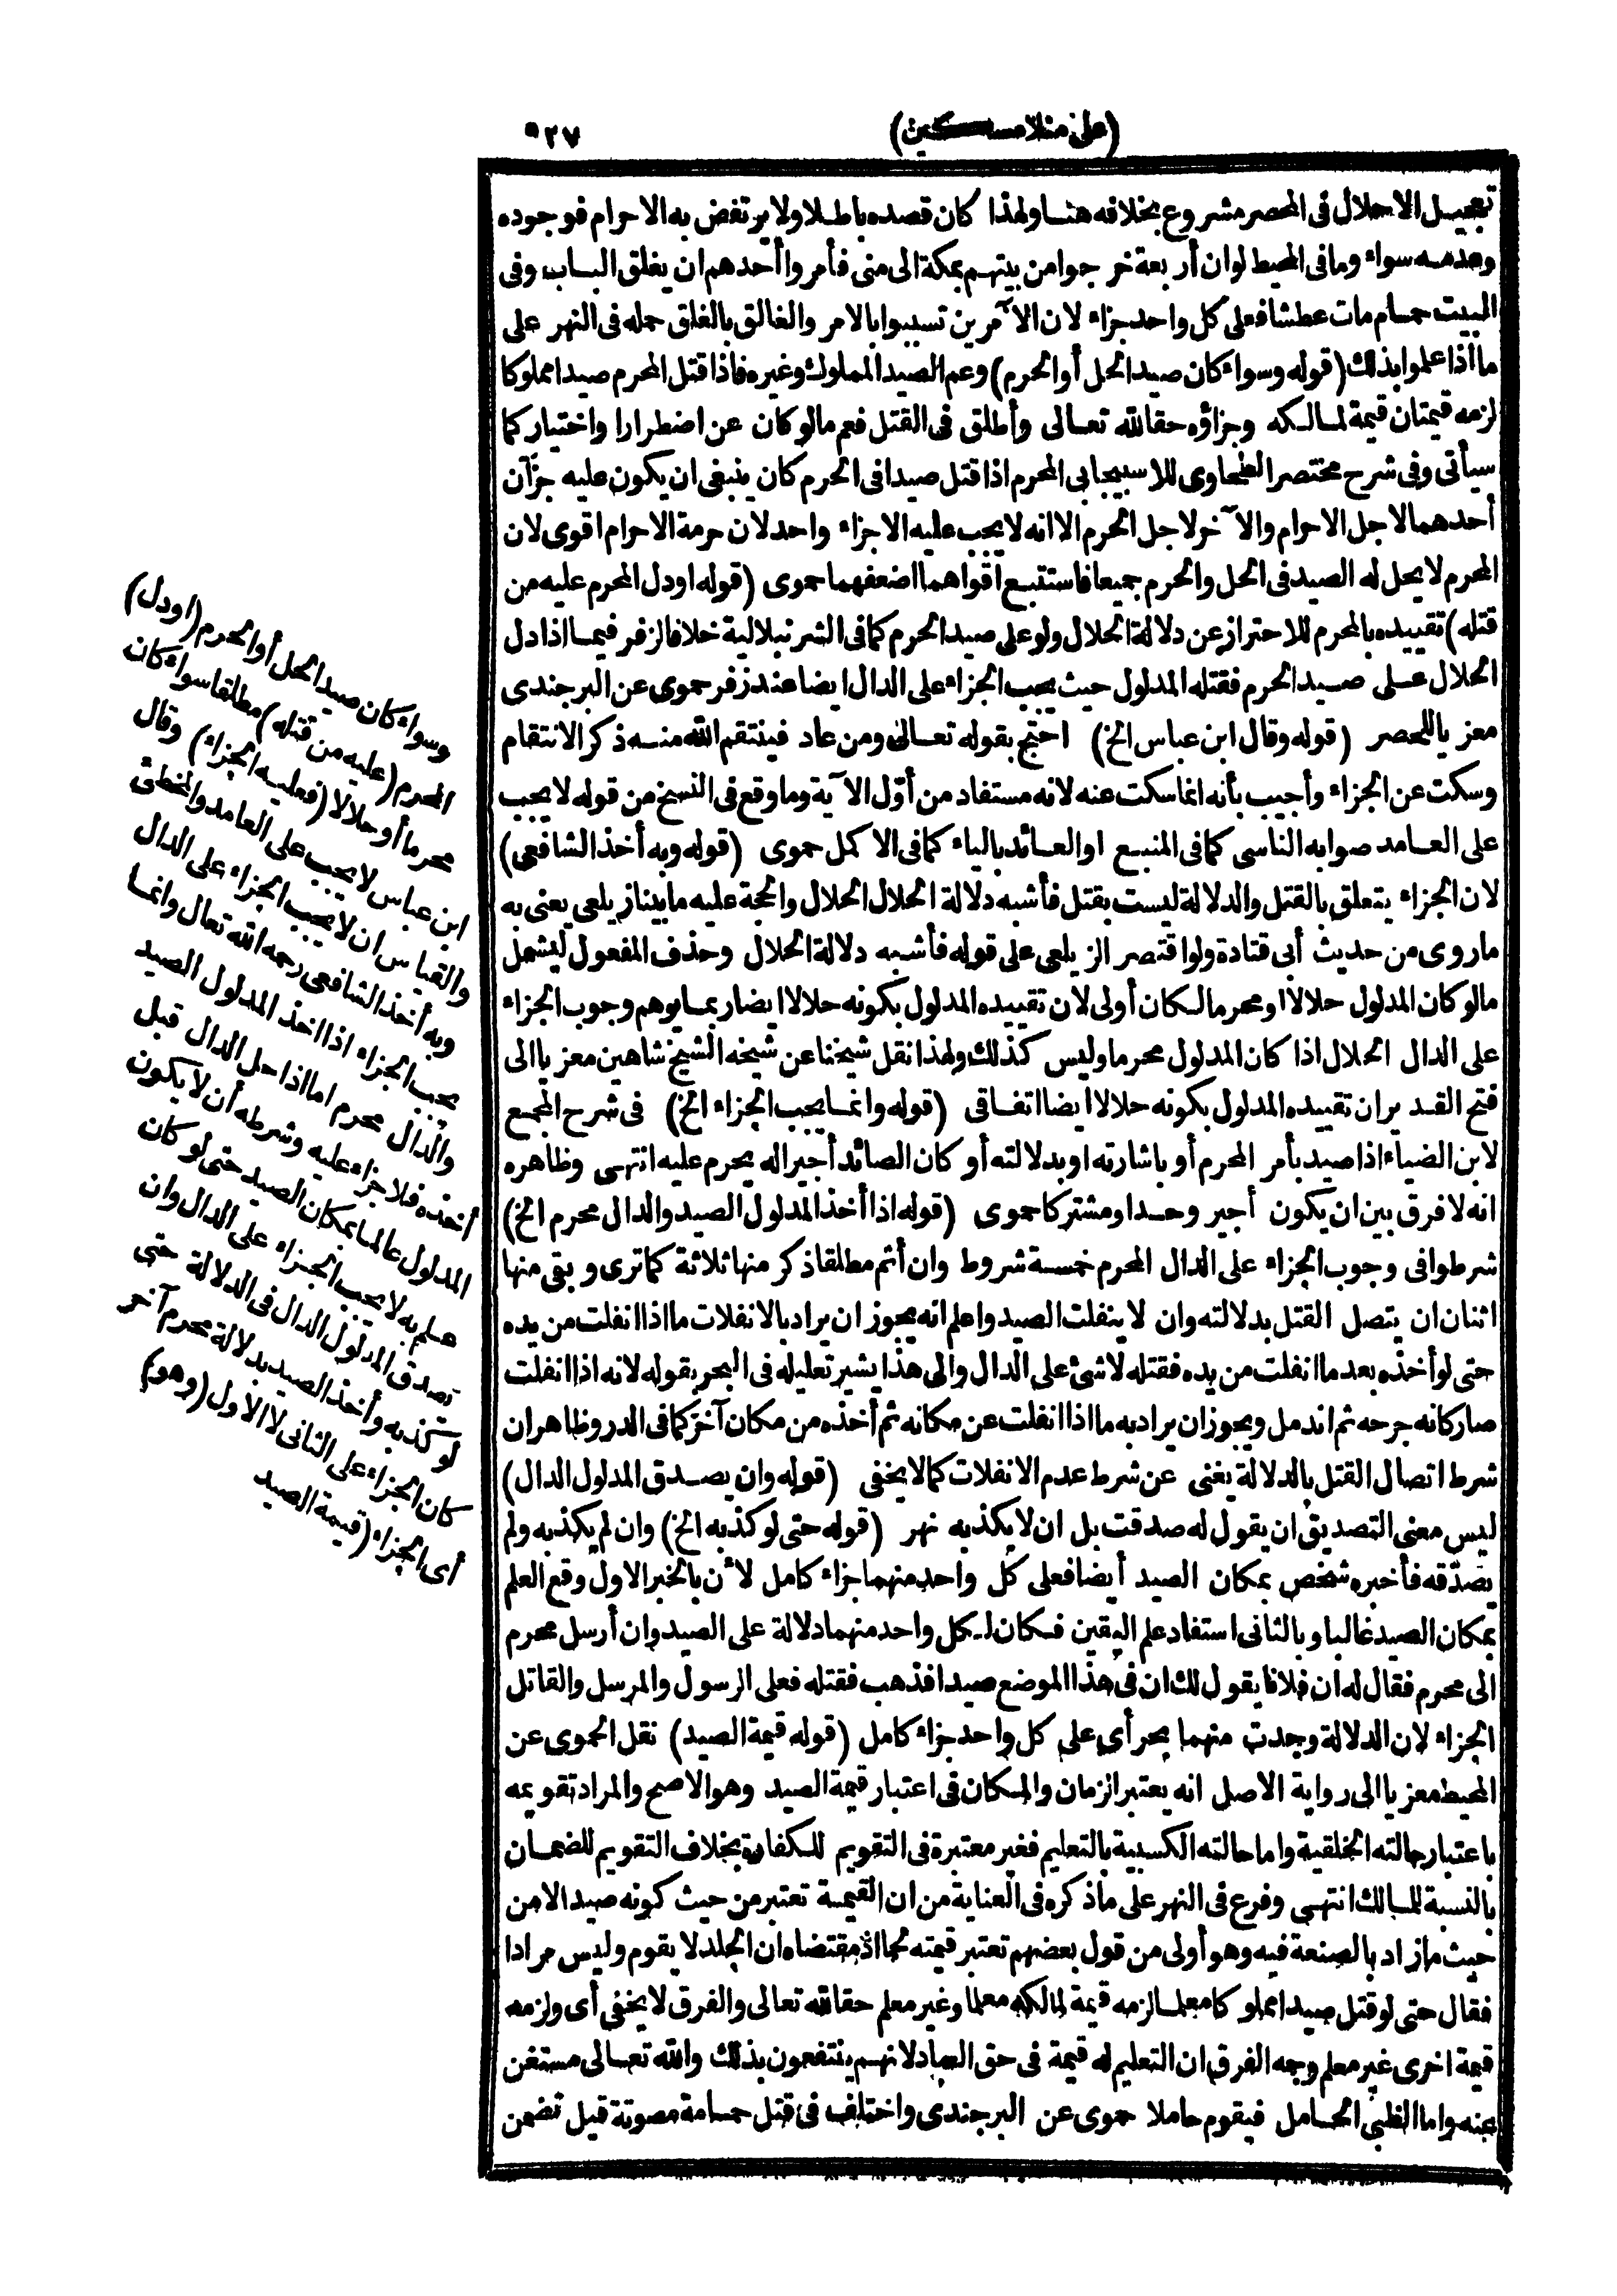 (على منلا مسكين) ٥٢٧
تعجيل الاحلال فى المحصر مشروع بخلافه هنا ولهذا كان قصده باطلا ولا يرتفض به الاحرام فوجوده
وعدمه سواء وما فى المحيط لو ان أربعة خرجوا من بيتهم بمكة الى منى فأمروا أحدهم ان يغلق الباب وفى
البيت حمام مات عطشا فعلى كل واحد جزاء لان الآمرين تسببوا بالامر والغالق بالغلق حمله فى النهر على
ما اذا علموا بذلك (قوله وسواء كان صيد الحل أو الحرم) وعم الصيد المملوك وغيره فاذا قتل المحرم صيدا مملوكا
لزمه قيمتان قيمة لمالكه وجزاؤه حقا لله تعالى وأطلق فى القتل فعم ما لو كان عن اضطرارا واختيار كما
سيأتى وفى شرح مختصر الطحاوى للاسبيجابى المحرم اذا قتل صيدا فى الحرم كان ينبغى ان يكون عليه جزآن
أحدهما لاجل الاحرام والآخر لاجل الحرم الا انه لا يجب عليه الاجزاء واحد لان حرمة الاحرام اقوى لان
المحرم لا يحل له الصيد فى الحل والحرم جميعا فاستتبع اقواهما اضعفهما حموى (قوله او دل المحرم عليه من
قتله) تقييده بالمحرم للاحتراز عن دلالة الحلال ولو على صيد الحرم كما فى الشرنبلالية خلافا لزفر فيما اذا دل
الحلال على صيد الحرم فقتله المدلول حيث يجب الجزاء على الدال ايضا عند زفر حموى عن البرجندى
معزيا للمحصر (قوله وقال ابن عباس الخ) احتج بقوله تعالى ومن عاد فينتقم الله منه ذكر الانتقام
وسكت عن الجزاء وأجيب بأنه انما سكت عنه لانه مستفاد من أوّل الآية وما وقع فى النسخ من قوله لا يجب
على العامد صوابه الناسى كما فى المنبع او العائد بالياء كما فى الاكمل حموى (قوله وبه أخذ الشافعى)
لان الجزاء يتعلق بالقتل والدلالة ليست بقتل فأشبه دلالة الحلال الحلال والحجة عليه ما بينا زيلعى يعنى به
ما روى من حديث أبى قتادة ولو اقتصر الزيلعى على قوله فأشبه دلالة الحلال وحذف المفعول ليشمل
ما لو كان المدلول حلالا او محرما لكان أولى لان تقييده المدلول بكونه حلالا ايضا ربما يوهم وجوب الجزاء
على الدال الحلال اذا كان المدلول محرما وليس كذلك ولهذا نقل شيخنا عن شيخه الشيخ شاهين معزيا الى
فتح القدير ان تقييده المدلول بكونه حلالا ايضا اتفاقى (قوله وانما يجب الجزاء الخ) فى شرح المجمع
لابن الضياء اذا صيد بأمر المحرم أو باشارته او بدلالته أو كان الصائد أجيرا له يحرم عليه انتهى وظاهره
انه لا فرق بين ان يكون أجير وحد او مشتركا حموى (قوله اذا أخذ المدلول الصيد والدال محرم الخ)
شرطوا فى وجوب الجزاء على الدال المحرم خمسة شروط وان أثم مطلقا ذكر منها ثلاثة كما ترى وبقى منها
اثنان ان يتصل القتل بدلالته وان لا ينفلت الصيد واعلم انه يجوز ان يراد بالانفلات ما اذا انفلت من يده
حتى لو أخذه بعد ما انفلت من يده فقتله لا شئ على الدال والى هذا يشير تعليله فى البحر بقوله لانه اذا انفلت
صار كانه جرحه ثم اندمل ويجوز ان يراد به ما اذا انفلت عن مكانه ثم أخذه من مكان آخر كما فى الدر وظاهر ان
شرط اتصال القتل بالدلالة يغنى عن شرط عدم الانفلات كما لا يخفى (قوله وان يصدق المدلول الدال)
ليس معنى التصديق ان يقول له صدقت بل ان لا يكذبه نهر (قوله حتى لو كذبه الخ) وان لم يكذبه ولم
يصدّقه فأخبره شخص بمكان الصيد أيضا فعلى كل واحد منهما جزاء كامل لأن بالخبر الاول وقع العلم
بمكان الصيد غالبا وبالثانى استفاد علم اليقين فكان لكل واحد منهما دلالة على الصيد وان أرسل محرم
الى محرم فقال له ان فلانا يقول لك ان فى هذا الموضع صيدا فذهب فقتله فعلى الرسول والمرسل والقاتل
الجزاء لان الدلالة وجدت منهما بحر أى على كل واحد جزاء كامل (قوله قيمة الصيد) نقل الحموى عن
المحيط معزيا الى رواية الاصل انه يعتبر الزمان والمكان فى اعتبار قيمة الصيد وهو الاصح والمراد تقويمه
باعتبار حالته الخلقية واما حالته الكسبية بالتعليم فغير معتبرة فى التقويم للكفارة بخلاف التقويم للضمان
بالنسبة للمالك انتهى وفرع فى النهر على ما ذكره فى العناية من ان القيمة تعتبر من حيث كونه صيدا لا من
حيث ما زاد بالصنعة فيه وهو أولى من قول بعضهم تعتبر قيمته لحما اذ مقتضاه ان الجلد لا يقوم وليس مرادا
فقال حتى لو قتل صيدا مملوكا معلما لزمه قيمة لمالكه معلما وغير معلم حقا لله تعالى والفرق لا يخفى أى ولزمه
قيمة اخرى غير معلم وجه الفرق ان التعليم له قيمة فى حق العباد لانهم ينتفعون بذلك والله تعالى مستغن
عنه واما الظبى الحامل فيقوم حاملا حموى عن البرجندى واختلف فى قتل حمامة مصوتة قيل تضمن
وسواء كان صيد الحل أو الحرم (او دل)
المحرم (عليه من قتله) مطلقا سواء كان
محرما أو حلالا (فعليه الجزاء) وقال
ابن عباس لا يجب على العامد والمخطئ
والقياس ان لا يجب الجزاء على الدال
وبه أخذ الشافعى رحمه الله تعالى وانما
يجب الجزاء اذا اخذ المدلول الصيد
والدال محرم اما اذا حل الدال قبل
أخذه فلا جزاء عليه وشرطه أن لا يكون
المدلول عالما بمكان الصيد حتى لو كان
علم به لا يجب الجزاء على الدال وان
يصدق المدلول الدال فى الدلالة حتى
لو كذبه وأخذ الصيد بدلالة محرم آخر
كان الجزاء على الثانى لا الاول (وهو)
أى الجزاء (قيمة الصيد